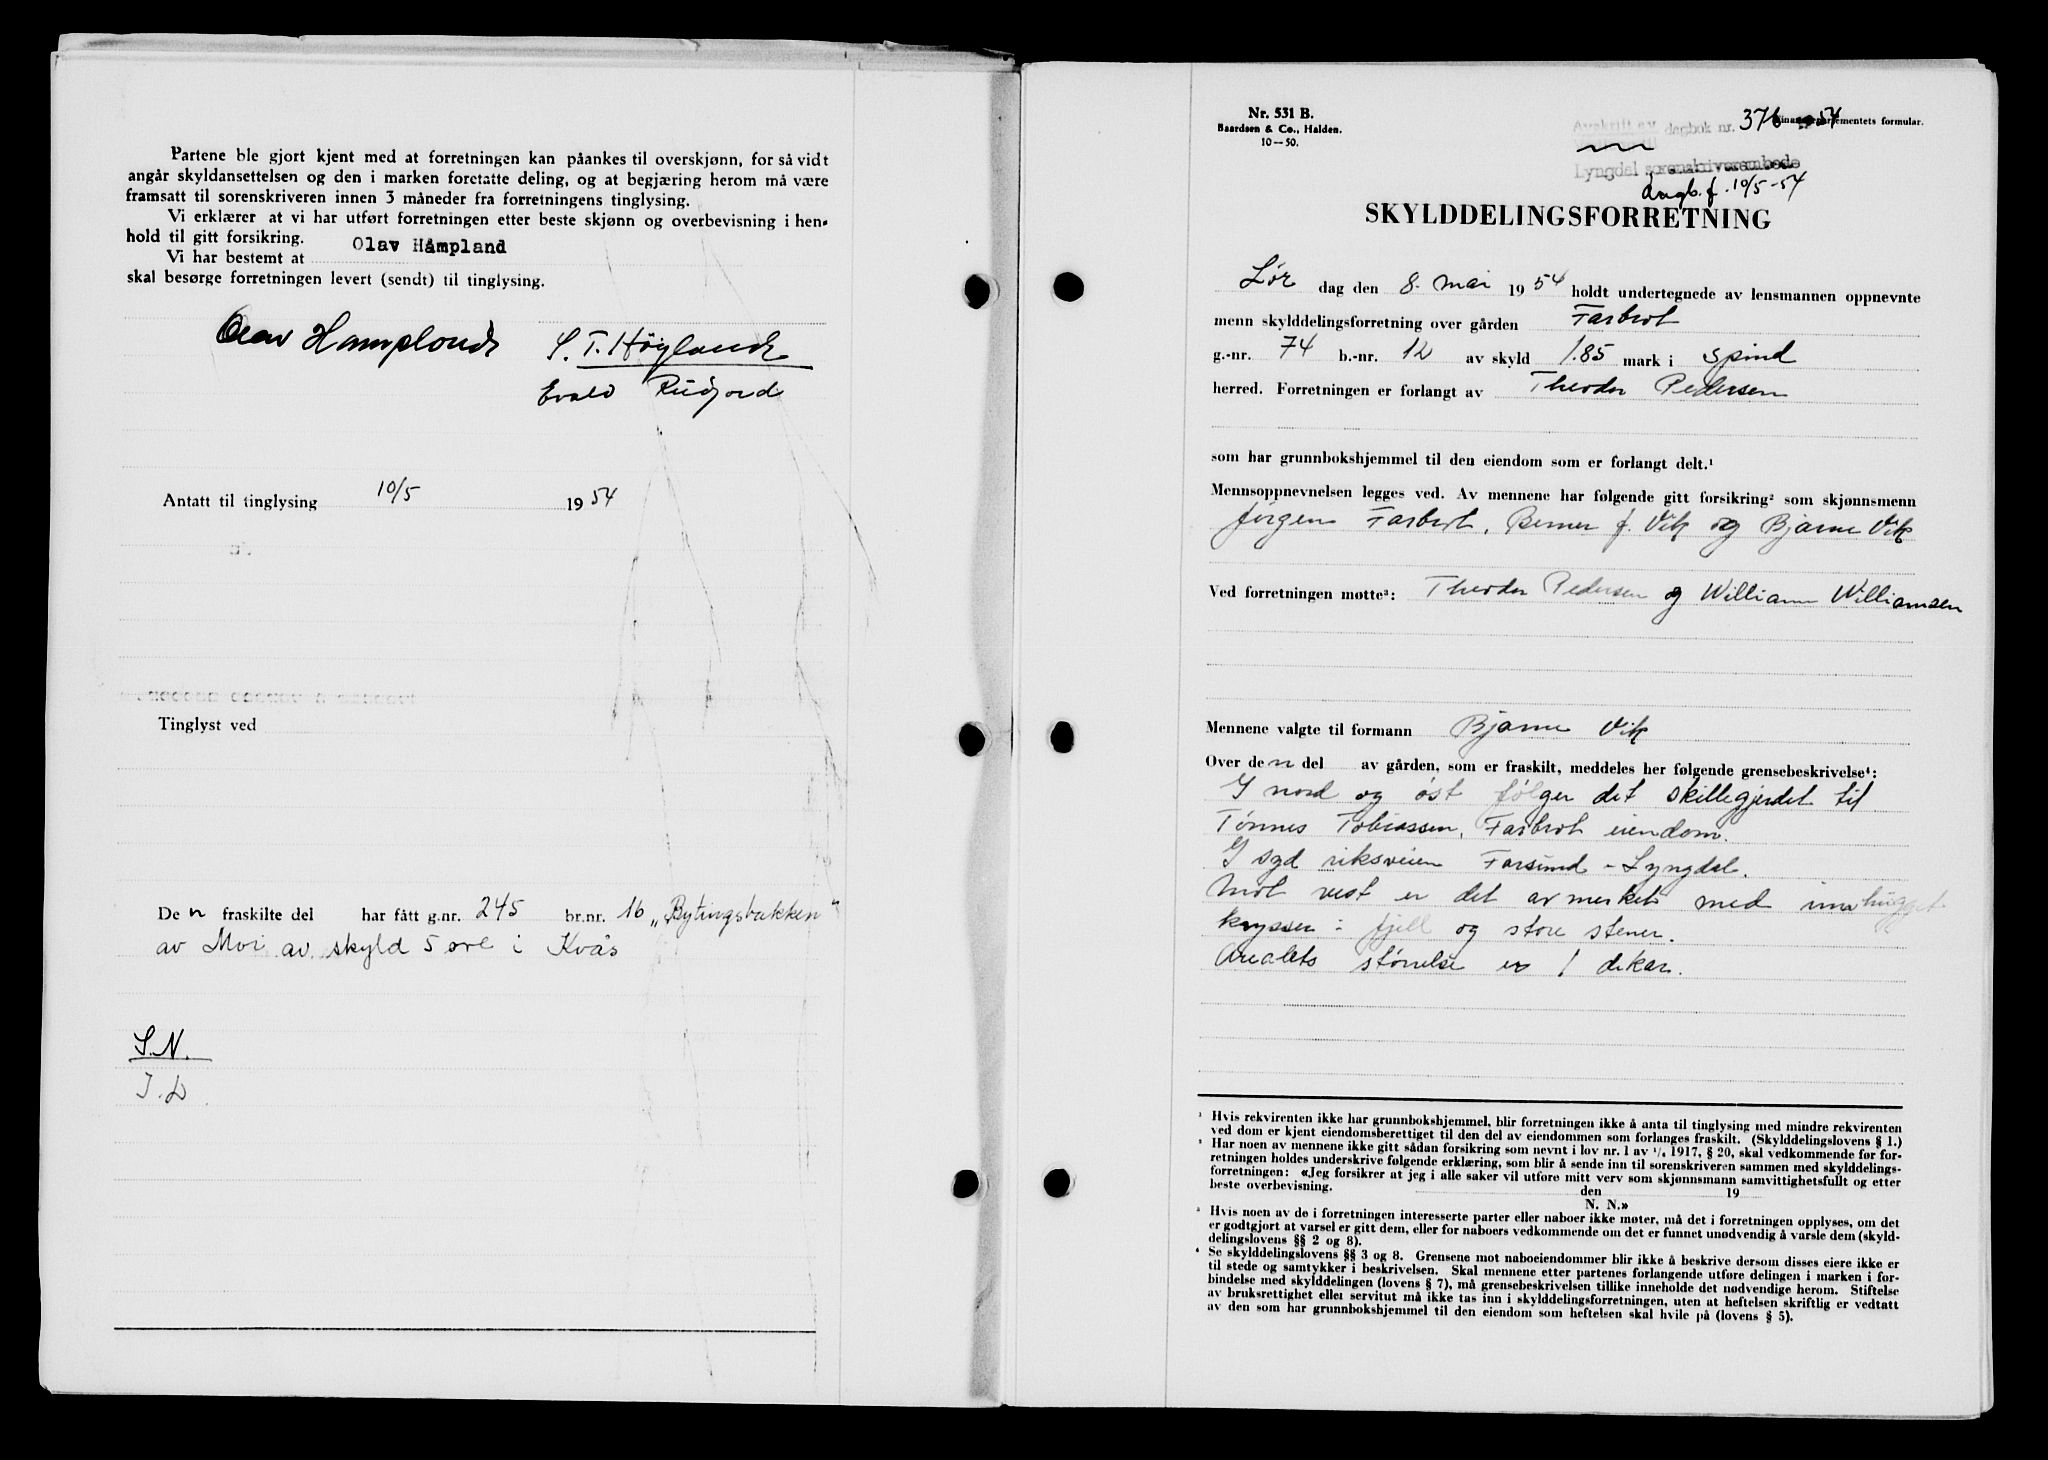 Partene ble gjort kjent med at forretningen kan påankes til overskjønn, for så vidt
angår skyldansettelsen og den i marken foretatte deling, og at begjæring herom må være
framsatt til sorenskriveren innen 3 måneder fra forretningens tinglysing.
Vi erklærer at vi har utført forretningen etter beste skjønn og overbevisning i hen-
hold til gitt forsikring.
Vi har bestemt at Olav Håmpland
skal besørge forretningen levert (sendt) til tinglysing.
Olav Hompland S. T. Høyland
Evald Rudjord
Antatt til tinglysing 10/5 1954
Tinglyst ved
Den fraskilte del har fått g.nr. 245 br.nr. 16 „Bytingsbakken"
av Moi av skyld 5 øre i Kvås
S.N.
J.L.
Nr. 531 B.
Baardsen & Co., Halden.
10—50.
Avskrift av dagbok nr. 376 - 54 Finansdepartementets formular.
Lyngdal sorenskriverembede
dagb.f. 10/5-54
SKYLDDELINGSFORRETNING
Lør dag den 8. mai 1954 holdt undertegnede av lensmannen oppnevnte
menn skylddelingsforretning over gården Farbrot
g.-nr. 74 b.-nr. 12 av skyld 1.85 mark i Spind
herred. Forretningen er forlangt av Theodor Pedersen
som har grunnbokshjemmel til den eiendom som er forlangt delt.¹
Mennsoppnevnelsen legges ved. Av mennene har følgende gitt forsikring² som skjønnsmenn
Jørgen Farbrot, Berner J. Vik og Bjarne Vik
Ved forretningen møtte³: Theodor Pedersen og William Williamsen
Mennene valgte til formann Bjarne Vik
Over den del av gården, som er fraskilt, meddeles her følgende grensebeskrivelse⁴:
I nord og øst følger det skillegjerdet til
Tønnes Tobiassen, Farbrot eiendom.
I syd riksveien Farsund - Lyngdal.
Mot vest er det avmerket med innhugget
krysser i fjell og store stener.
Arealets størrelse er 1 dekar.
¹ Hvis rekvirenten ikke har grunnbokshjemmel, blir forretningen ikke å anta til tinglysing med mindre rekvirenten
ved dom er kjent eiendomsberettiget til den del av eiendommen som forlanges fraskilt. (Skylddelingslovens § 1.)
² Har noen av mennene ikke gitt sådan forsikring som nevnt i lov nr. 1 av ¹/₆ 1917, § 20, skal vedkommende før for-
retningen holdes underskrive følgende erklæring, som blir å sende inn til sorenskriveren sammen med skylddelings-
forretningen: «Jeg forsikrer at jeg i alle saker vil utføre mitt verv som skjønnsmann samvittighetsfullt og etter
beste overbevisning. den 19
N. N.»
³ Hvis noen av de i forretningen interesserte parter eller naboer ikke møter, må det i forretningen opplyses, om det
er godtgjort at varsel er gitt dem, eller for naboers vedkommende om det er funnet unødvendig å varsle dem (skyld-
delingslovens §§ 2 og 8).
⁴ Se skylddelingslovens §§ 3 og 8. Grensene mot naboeiendommer blir ikke å beskrive dersom disses eiere ikke er
til stede og samtykker i beskrivelsen. Skal mennene etter partenes forlangende utføre delingen i marken i for-
bindelse med skylddelingen (lovens § 7), må grensebeskrivelsen tillike inneholde det nødvendige herom. Stiftelse
av bruksrettighet eller servitut må ikke tas inn i skylddelingsforretningen, uten at heftelsen skriftlig er vedtatt
av den som har grunnbokshjemmel til den eiendom som heftelsen skal hvile på (lovens § 5).